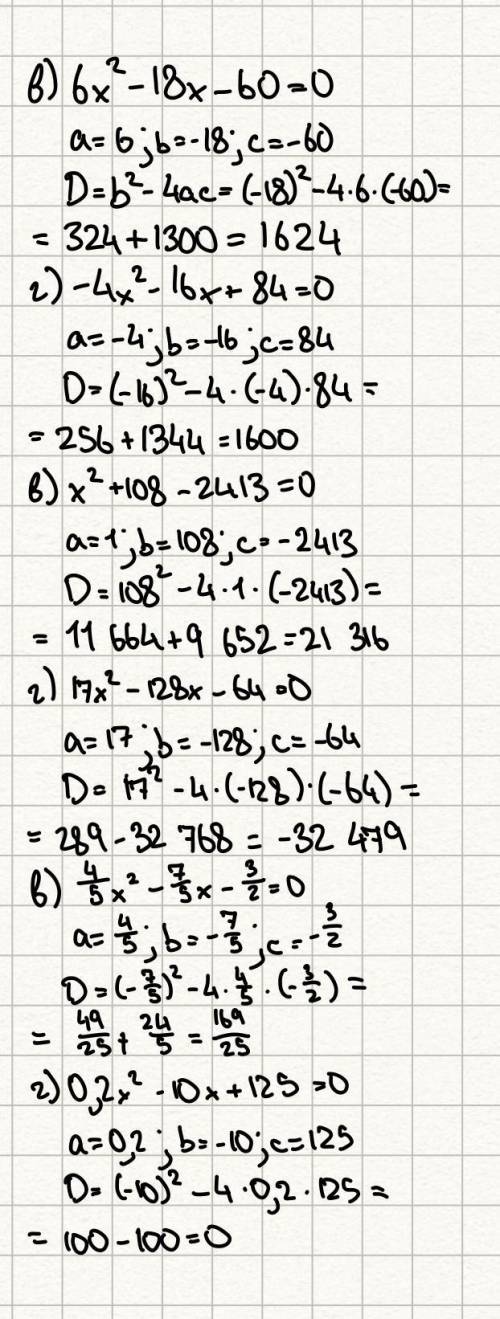 в) 6x² - 18x - 60 = 0
a = 6; b = -18; c = -60
D = b² - 4ac = (-18)² - 4·6·(-60) =
= 324 + 1300 = 1624
г) -4x² - 16x + 84 = 0
a = -4; b = -16; c = 84
D = (-16)² - 4·(-4)·84 =
= 256 + 1344 = 1600
в) x² + 108 - 2413 = 0
a = 1; b = 108; c = -2413
D = 108² - 4·1·(-2413) =
= 11 664 + 9 652 = 21 316
г) 17x² - 128x - 64 = 0
a = 17; b = -128; c = -64
D = 17² - 4·(-128)·(-64) =
= 289 - 32 768 = -32 479
в) 4/5x² - 7/5x - 3/2 = 0
a = 4/5; b = -7/5; c = -3/2
D = (-7/5)² - 4·4/5·(-3/2) =
= 49/25 + 24/5 = 169/25
г) 0,2x² - 10x + 125 = 0
a = 0,2; b = -10; c = 125
D = (-10)² - 4·0,2·125 =
= 100 - 100 = 0